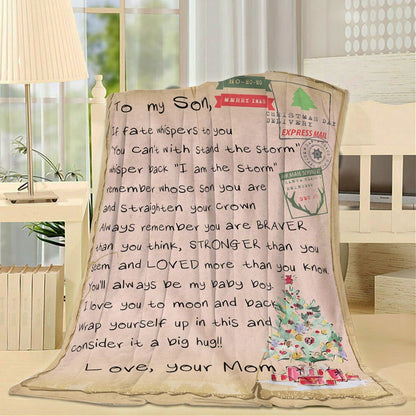 HO-HO-HO
MERRY XMAS
CHRISTMAS DAY
DELIVERY
EXPRESS MAIL
To my Son,
If fate whispers to you
"You can't with stand the storm"
whisper back "I am the storm"
remember whose son you are
and straighten your crown
Always remember you are BRAVER
than you think, STRONGER than you
seem and LOVED more than you know.
You'll always be my baby boy.
I love you to moon and back
Wrap yourself up in this and
consider it a big hug!!
Love, your Mom